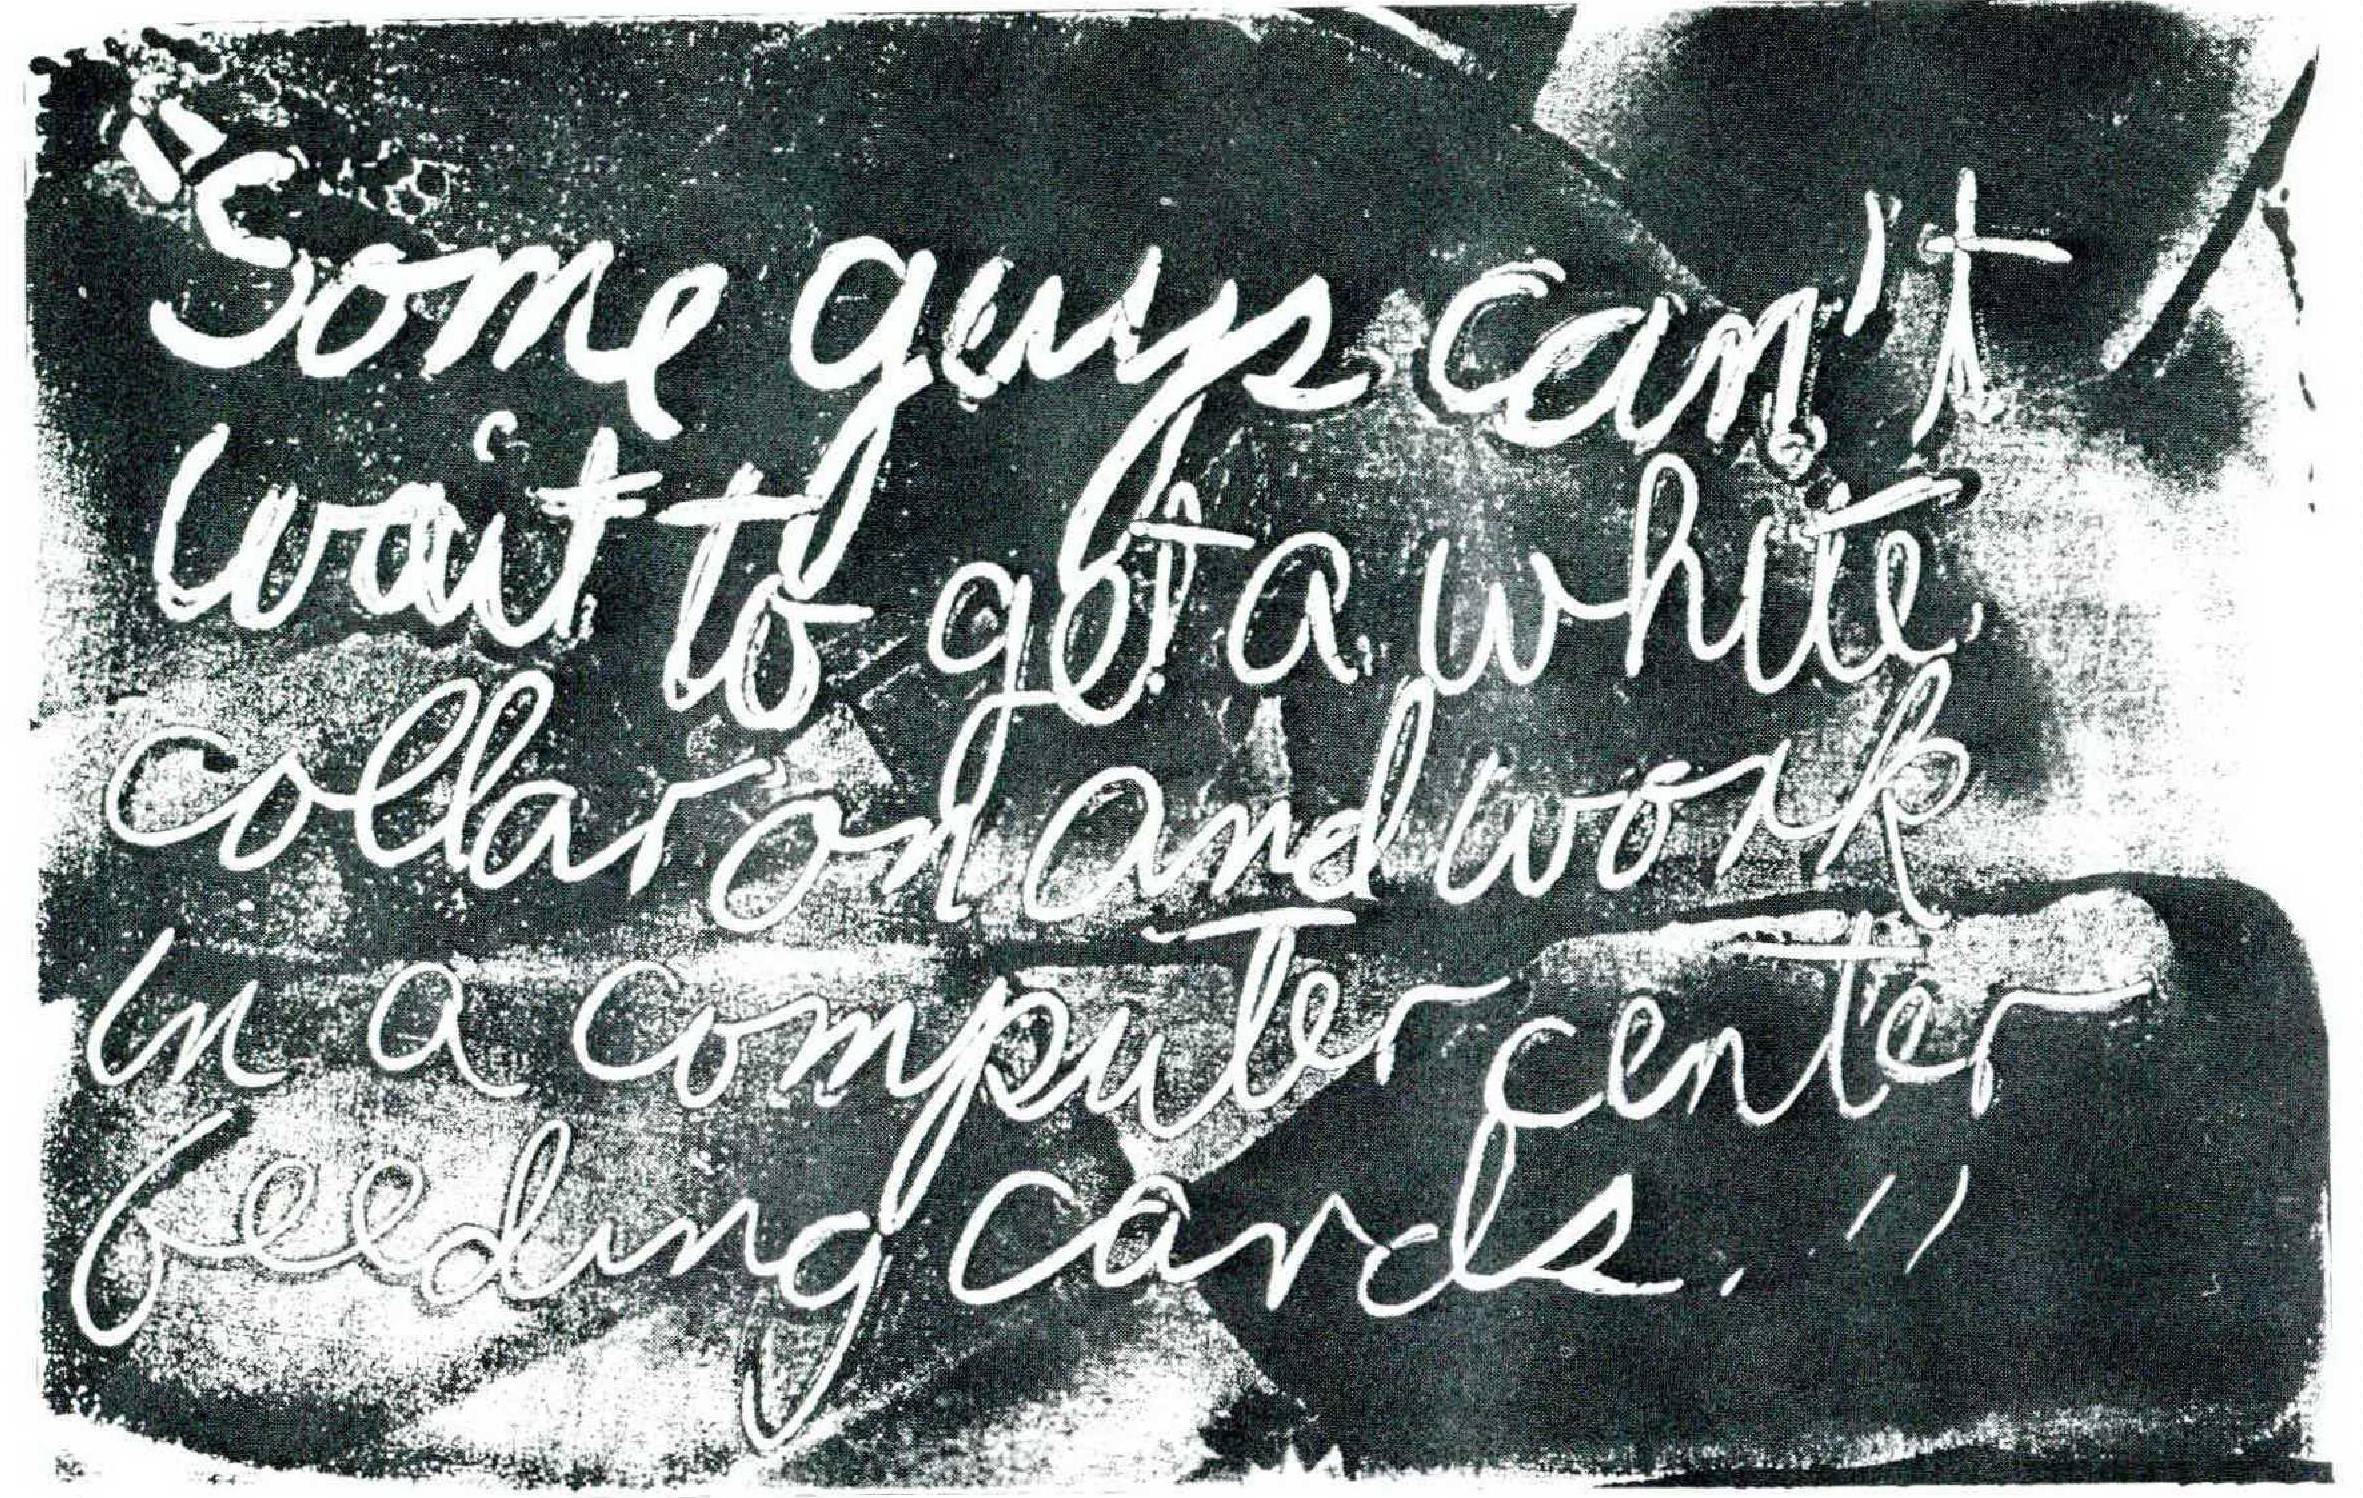 "Some guys can't
wait to got a white
collar on and work
in a computer center
feeding cards."